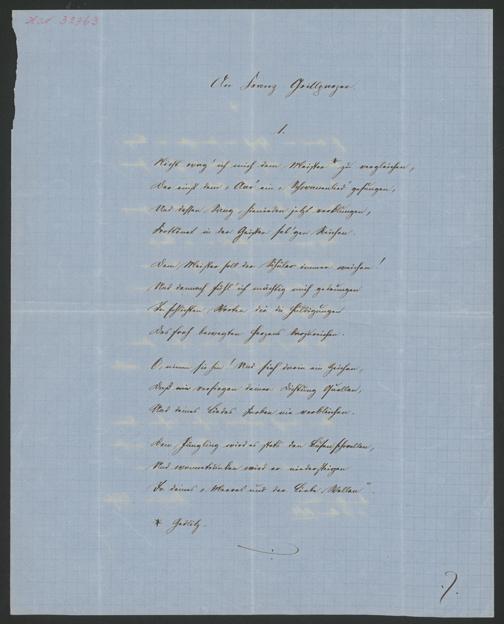 An Franz Grillparzer.
1.
Nicht wag' ich mich dem Meister * zu vergleichen,
Der einst dem „Aar" ein „Schwanenlied" gesungen,
Und dessen Sang, hienieden jetzt verklungen,
Forttönet in der Geister sel'gen Reichen.
Dem Meister soll der Schüler immer weichen!
Und dennoch fühl' ich mächtig mich gedrungen
In schlichten Worten dir die Huldigungen
Des froh bewegten Herzens darzureichen.
O, nimm sie hin! Und sieh darin ein Zeichen,
Daß nie versiegen deiner Dichtung Quellen,
Und deines Liedes Farben nie verbleichen.
Dem Jüngling wird es stets den Busen schwellen,
Und wonnetrunken wird er niedersteigen
In deines „Meeres und der Liebe Wellen"
* Zedlitz.